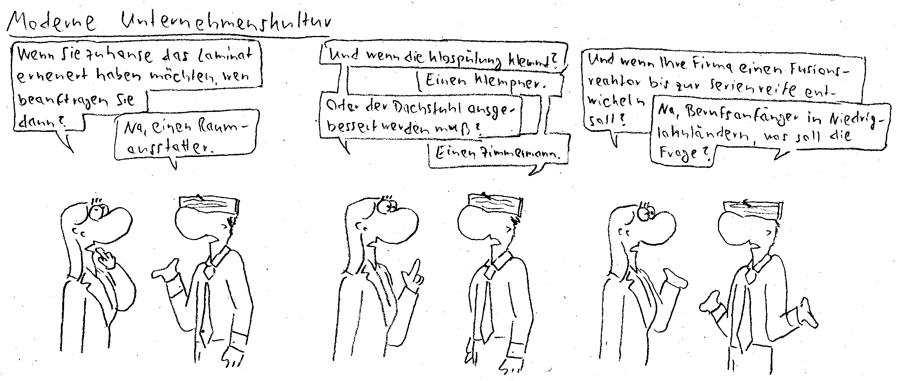 Moderne Unternehmenskultur
Wenn Sie zuhause das Laminat
erneuert haben möchten, wen
beauftragen Sie
dann?
Na, einen Raum-
ausstatter.
Und wenn die Klospülung klemmt?
Einen Klempner.
Oder der Dachstuhl ausge-
bessert werden muß?
Einen Zimmermann.
Und wenn Ihre Firma einen Fusions-
reaktor bis zur Serienreife ent-
wickeln
soll?
Na, Berufsanfänger in Niedrig-
lohnländern, was soll die
Frage?